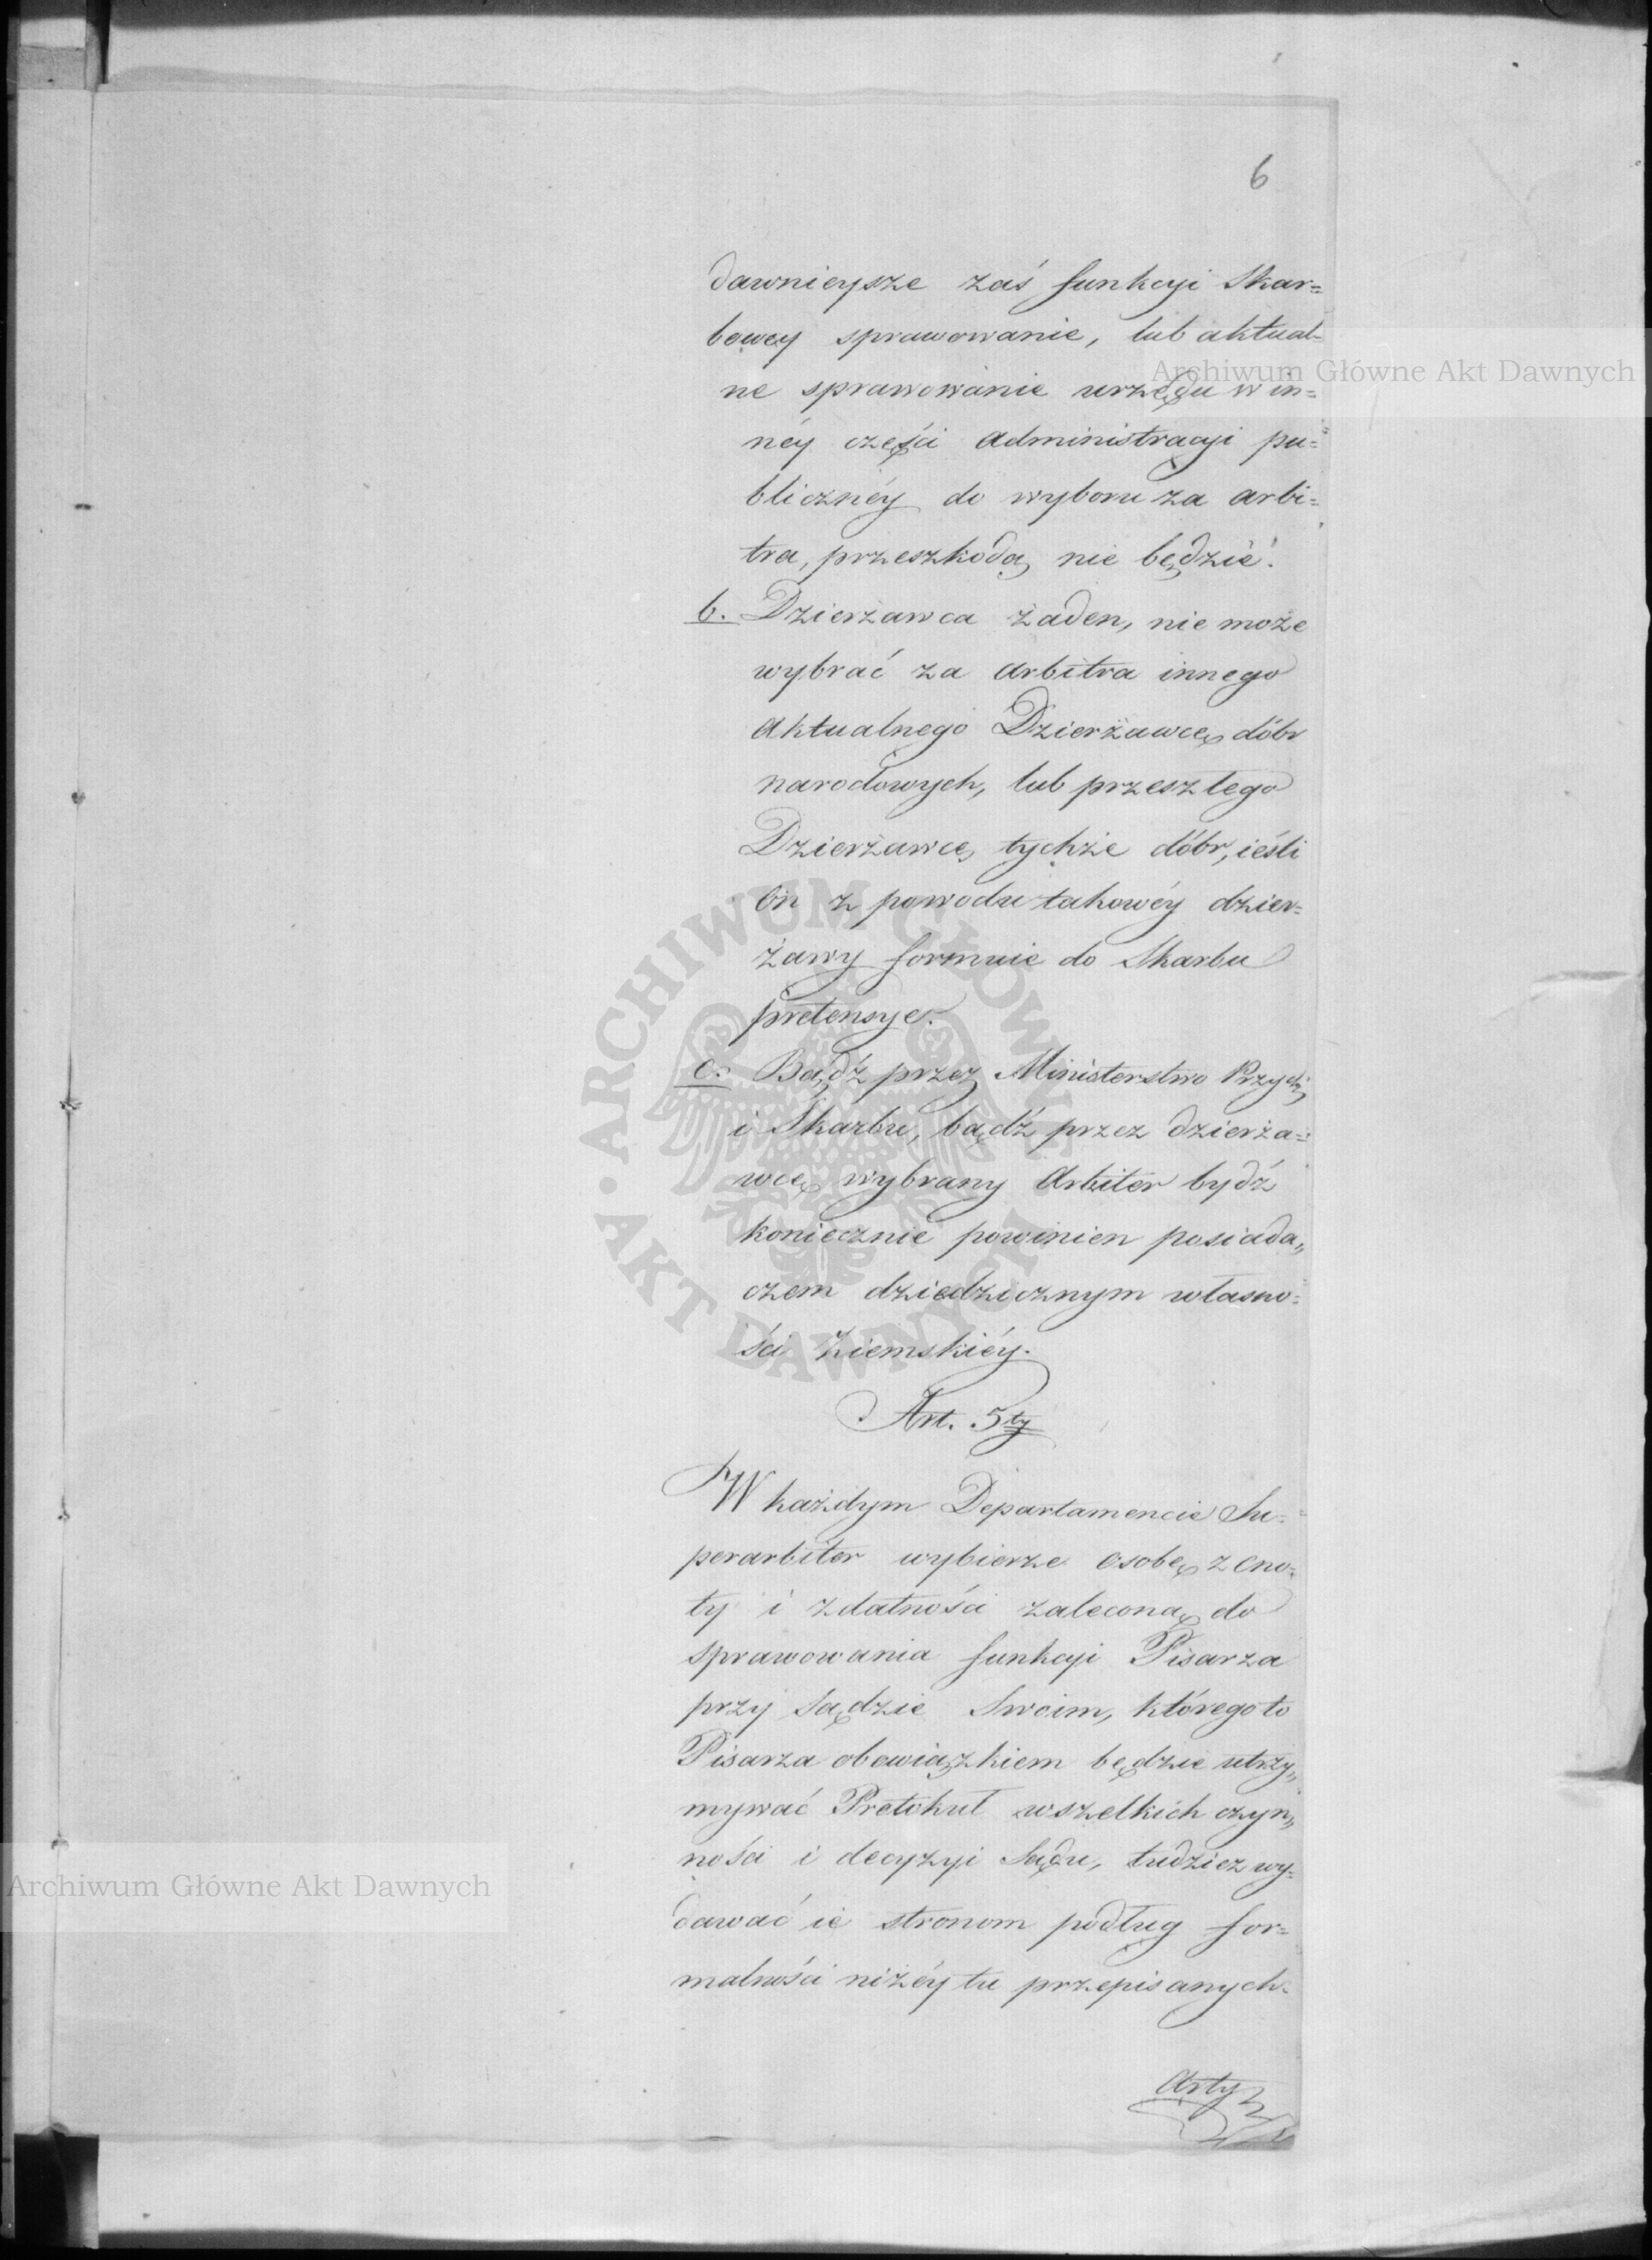 6
dawnieysze zaś funkcyi Skar=
bowey sprawowanie, lub aktual=
ne sprawowanie urzędu w in=
néy części administracyi pu=
blicznéy do wyboru za arbi=
tra, przeszkodą nie będzie.
b. Dzierżawca żaden, nie może
wybrać za arbitra innego
aktualnego Dzierżawcę dóbr
narodowych, lub przeszłego
Dzierżawcę tychże dóbr, ieśli
on z powodu takowéy dzier=
żawy formuie do Skarbu
pretensye.
c. Bądź przez Ministerstwo Przych:
i Skarbu, bądź przez dzierża=
wcę wybrany arbiter bydź
koniecznie powinien posiada„
czem dziedzicznym własno=
ści ziemskiéy.
Art. 5ty
W każdym Departamencie Su=
perarbiter wybierze osobę z cno=
ty i zdatności zaleconą do
sprawowania funkcyi Pisarza
przy Sądzie Swoim, którego to
Pisarza obowiązkiem będzie utrzy„
mywać Protokuł wszelkich czyn„
ności i decyzyi Sądu, tudzież wy=
dawać ie stronom podług for=
malności niżéy tu przepisanych.
Arty
Archiwum Główne Akt Dawnych
Archiwum Główne Akt Dawnych
ARCHIWUM GŁÓWNE AKT DAWNYCH